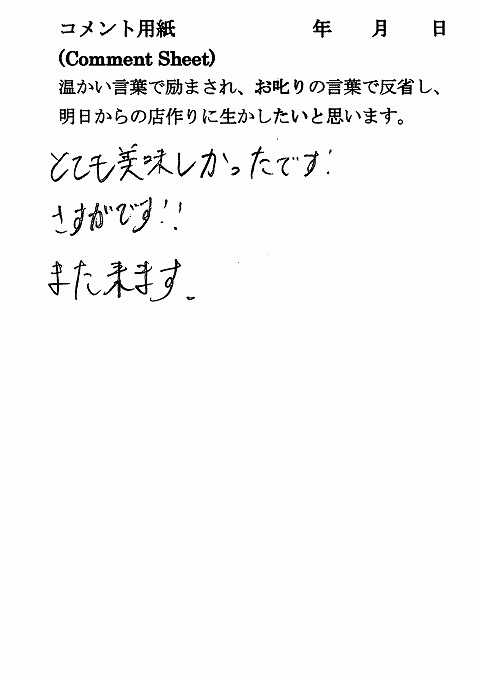 コメント用紙 年 月 日
(Comment Sheet)
温かい言葉で励まされ、お叱りの言葉で反省し、
明日からの店作りに生かしたいと思います。
とても美味しかったです!
さすがです!!
また来ます。